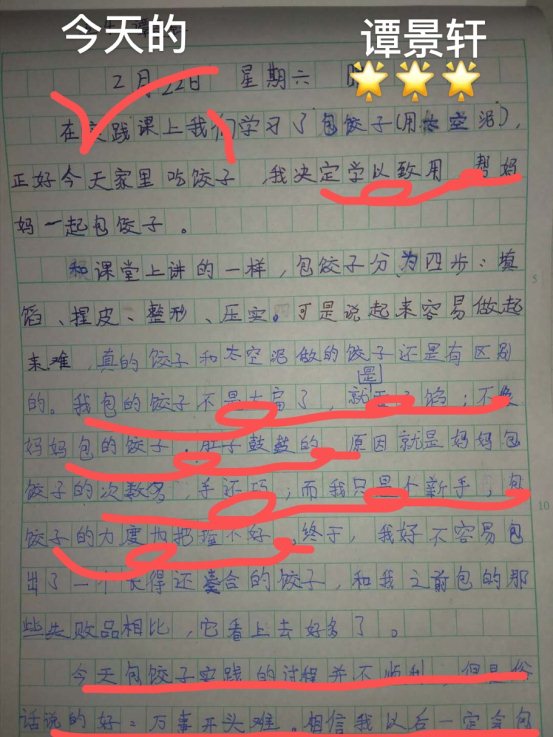 今天的
谭景轩
2月22日 星期六
在实践课上我们学习了包饺子(用太空泥),
正好今天家里吃饺子,我决定学以致用,帮妈
妈一起包饺子。
和课堂上讲的一样,包饺子分为四步:填
馅、捏皮、整形、压实。可是说起来容易做起
来难,真的饺子和太空泥做的饺子还是有区别
的。我包的饺子不是太扁了,就是了馅;不像
妈妈包的饺子,肚子鼓鼓的。原因就是妈妈包
饺子的次数多,手还巧;而我只是个新手,包
饺子的力度也把握不好。终于,我好不容易包
出了一个长得还合的饺子,和我之前包的那
些失败品相比,它看上去好多了。
今天包饺子实践的过程并不顺利,但是俗
话说的好:万事开头难。相信我以后一定会包
5
10